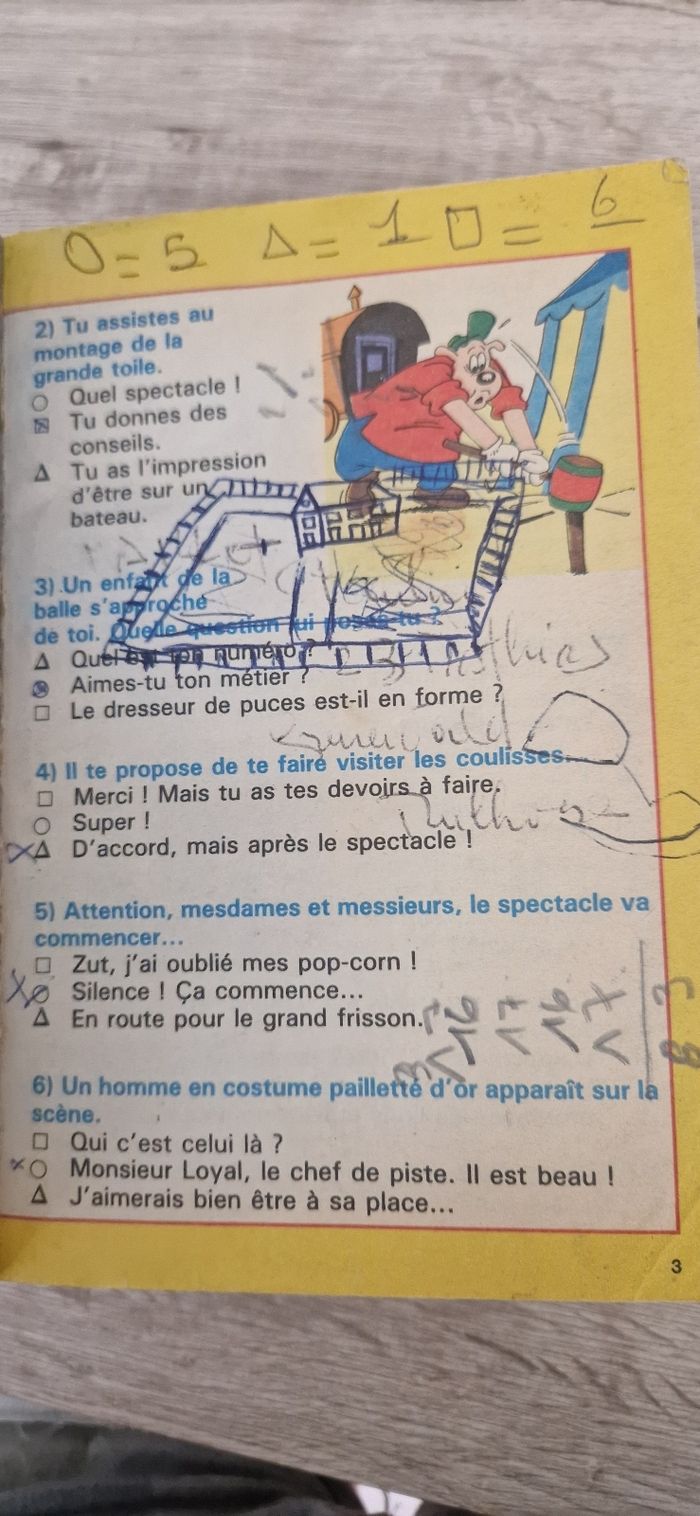 O = 5 Δ = 1 □ = 6
2) Tu assistes au
montage de la
grande toile.
○ Quel spectacle !
□ Tu donnes des
conseils.
Δ Tu as l'impression
d'être sur un
bateau.
3) Un enfant de la
balle s'approche
de toi. Quelle question lui poses-tu ?
Δ Quel est ton numéro ?
○ Aimes-tu ton métier ?
□ Le dresseur de puces est-il en forme ?
4) Il te propose de te faire visiter les coulisses.
□ Merci ! Mais tu as tes devoirs à faire.
○ Super !
Δ D'accord, mais après le spectacle !
5) Attention, mesdames et messieurs, le spectacle va
commencer...
□ Zut, j'ai oublié mes pop-corn !
○ Silence ! Ça commence...
Δ En route pour le grand frisson.
16
17
16
17
6) Un homme en costume pailletté d'or apparaît sur la
scène.
□ Qui c'est celui là ?
○ Monsieur Loyal, le chef de piste. Il est beau !
Δ J'aimerais bien être à sa place...
3